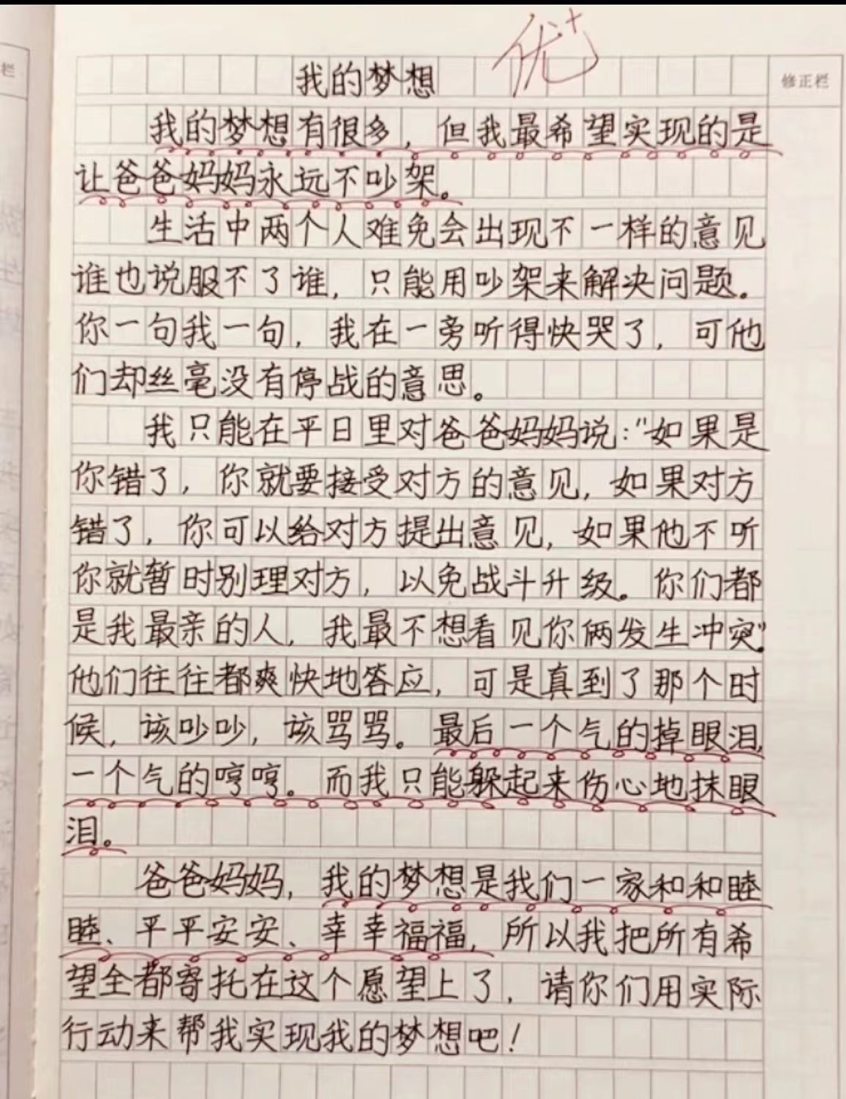 优+
栏
修正栏
我的梦想
我的梦想有很多，但我最希望实现的是
让爸爸妈妈永远不吵架。
生活中两个人难免会出现不一样的意见
谁也说服不了谁，只能用吵架来解决问题。
你一句我一句，我在一旁听得快哭了，可他
们却丝毫没有停战的意思。
我只能在平日里对爸爸妈妈说："如果是
你错了，你就要接受对方的意见，如果对方
错了，你可以给对方提出意见，如果他不听
你就暂时别理对方，以免战斗升级。你们都
是我最亲的人，我最不想看见你俩发生冲突。"
他们往往都爽快地答应，可是真到了那个时
候，该吵吵，该骂骂。最后一个气的掉眼泪，
一个气的哼哼。而我只能躲起来伤心地抹眼
泪。
爸爸妈妈，我的梦想是我们一家和和睦
睦、平平安安、幸幸福福，所以我把所有希
望全都寄托在这个愿望上了，请你们用实际
行动来帮我实现我的梦想吧！